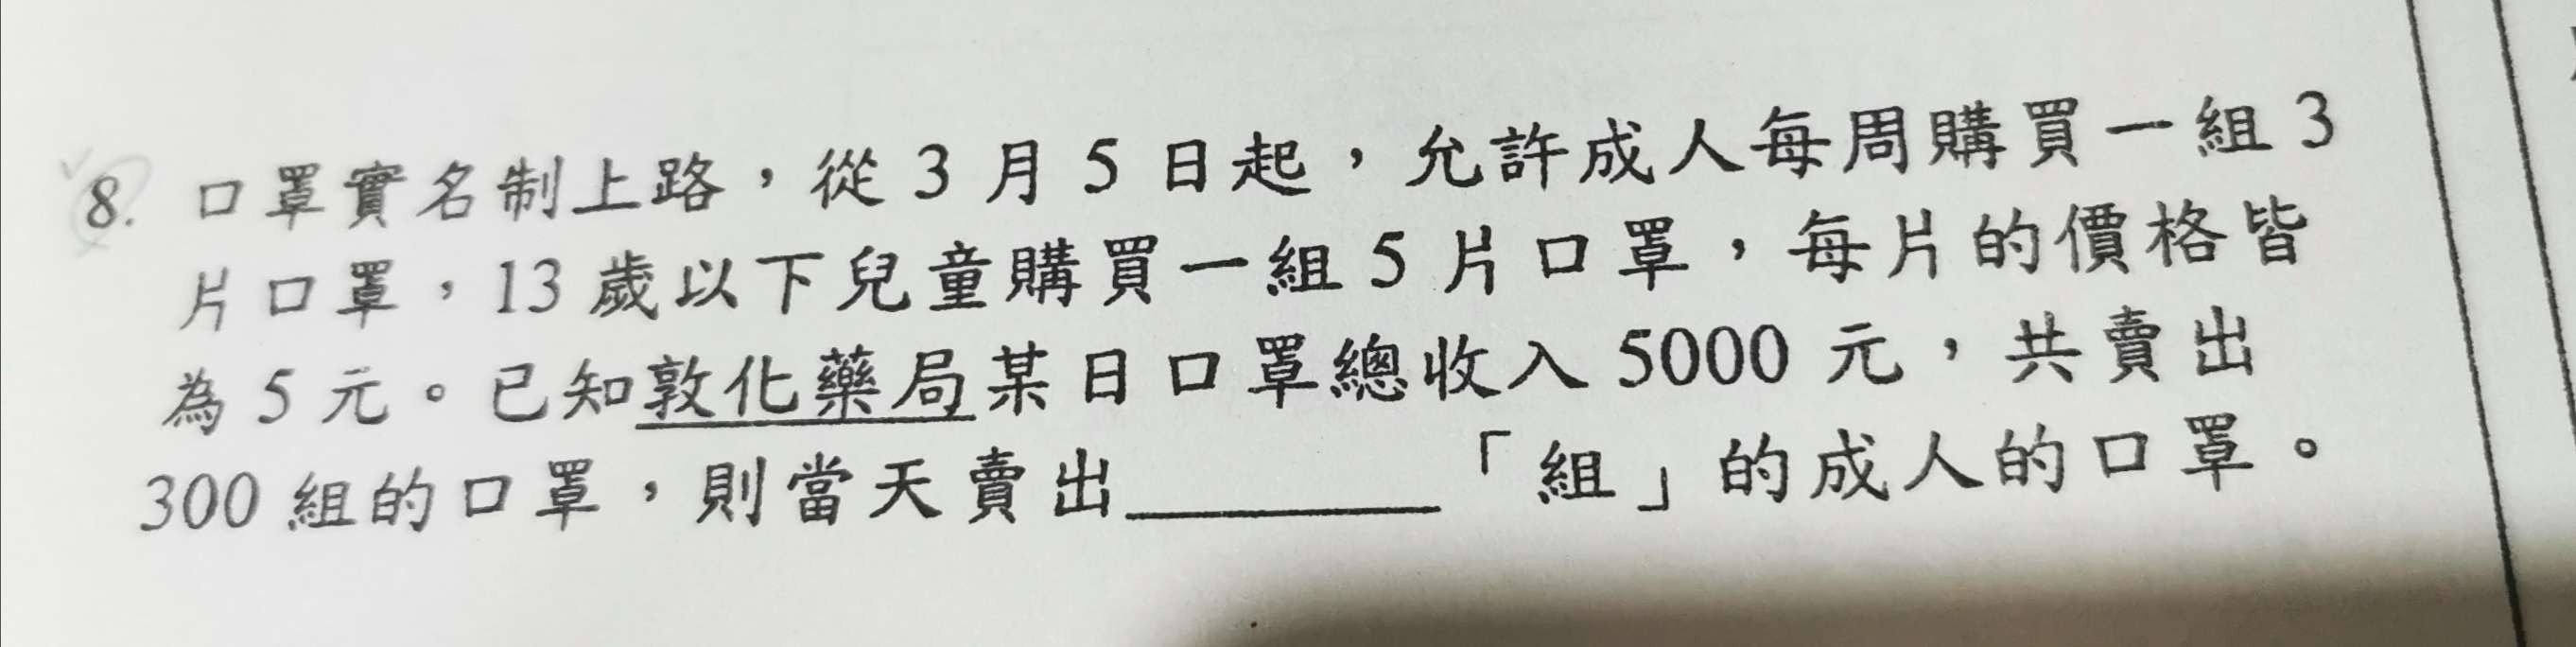 8. 口罩實名制上路，從 3 月 5 日起，允許成人每周購買一組 3
片口罩，13 歲以下兒童購買一組 5 片口罩，每片的價格皆
為 5 元。已知敦化藥局某日口罩總收入 5000 元，共賣出
300 組的口罩，則當天賣出________「組」的成人的口罩。